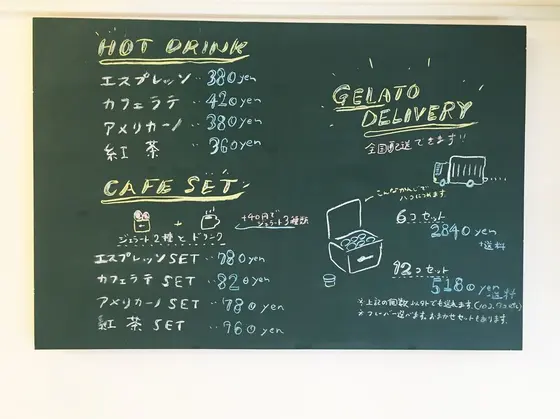 HOT DRINK
エスプレッソ ‥380yen
カフェラテ ‥420yen
アメリカーノ ‥380yen
紅茶 ‥360yen
CAFE SET
+
+40円でジェラート3種類
ジェラート2種とドリンク
エスプレッソSET ‥780yen
カフェラテSET ‥820yen
アメリカーノSET ‥780yen
紅茶SET ‥760yen
GELATO
DELIVERY
全国配送できます!!
こんなかんじで
ハコにつめます。
6コセット
2840yen
+送料
12コセット
5180yen
+送料
※上記の個数以外でも送れます。
※フレーバー選べます。おまかせセットもあります。